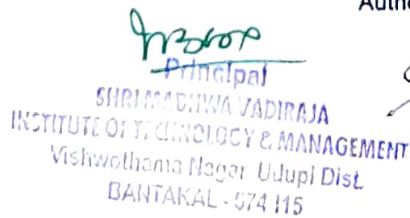 Autho
Principal
SHRI MADHWA VADIRAJA
INSTITUTE OF TECHNOLOGY & MANAGEMENT
Vishwothama Nagar Udupi Dist
BANTAKAL - 574 115